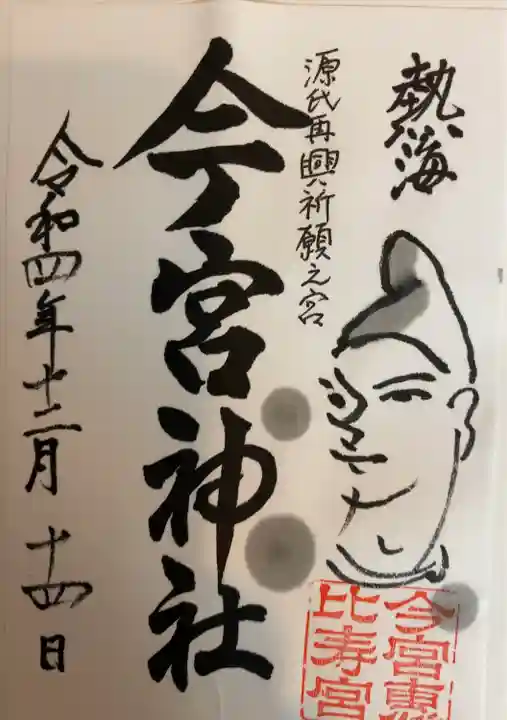 熱海
源氏再興祈願之宮
今宮神社
令和四年十二月十四日
今宮恵
比寿宮